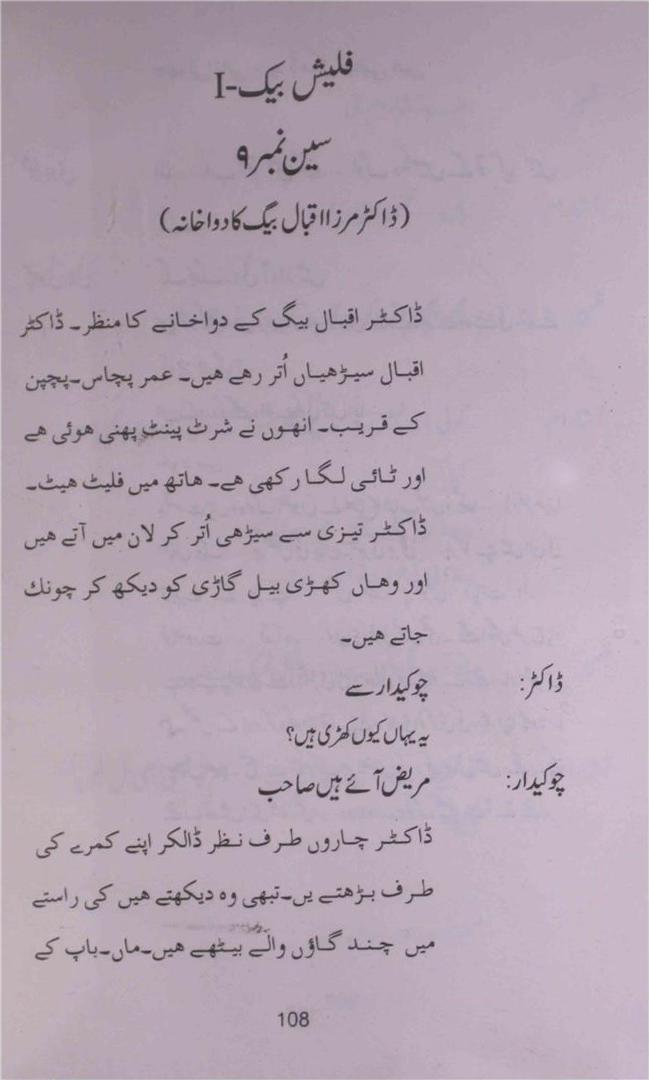 فلیش بیک-I
سین نمبر ۹
(ڈاکٹر مرزا اقبال بیگ کا دواخانہ)
ڈاکٹر اقبال بیگ کے دواخانے کا منظر۔ ڈاکٹر
اقبال سیڑھیاں اُتر رہے ہیں۔ عمر پچاس۔پچپن
کے قریب۔ انھوں نے شرٹ پینٹ پہنی ہوئی ہے
اور ٹائی لگا رکھی ہے۔ ہاتھ میں فلیٹ ہیٹ۔
ڈاکٹر تیزی سے سیڑھی اُتر کر لان میں آتے ہیں
اور وہاں کھڑی بیل گاڑی کو دیکھ کر چونک
جاتے ہیں۔
ڈاکٹر: چوکیدار سے
یہ یہاں کیوں کھڑی ہیں؟
چوکیدار: مریض آئے ہیں صاحب
ڈاکٹر چاروں طرف نظر ڈالکر اپنے کمرے کی
طرف بڑھتے یں۔تبھی وہ دیکھتے ہیں کی راستے
میں چند گاؤں والے بیٹھے ہیں۔ماں۔باپ کے
108